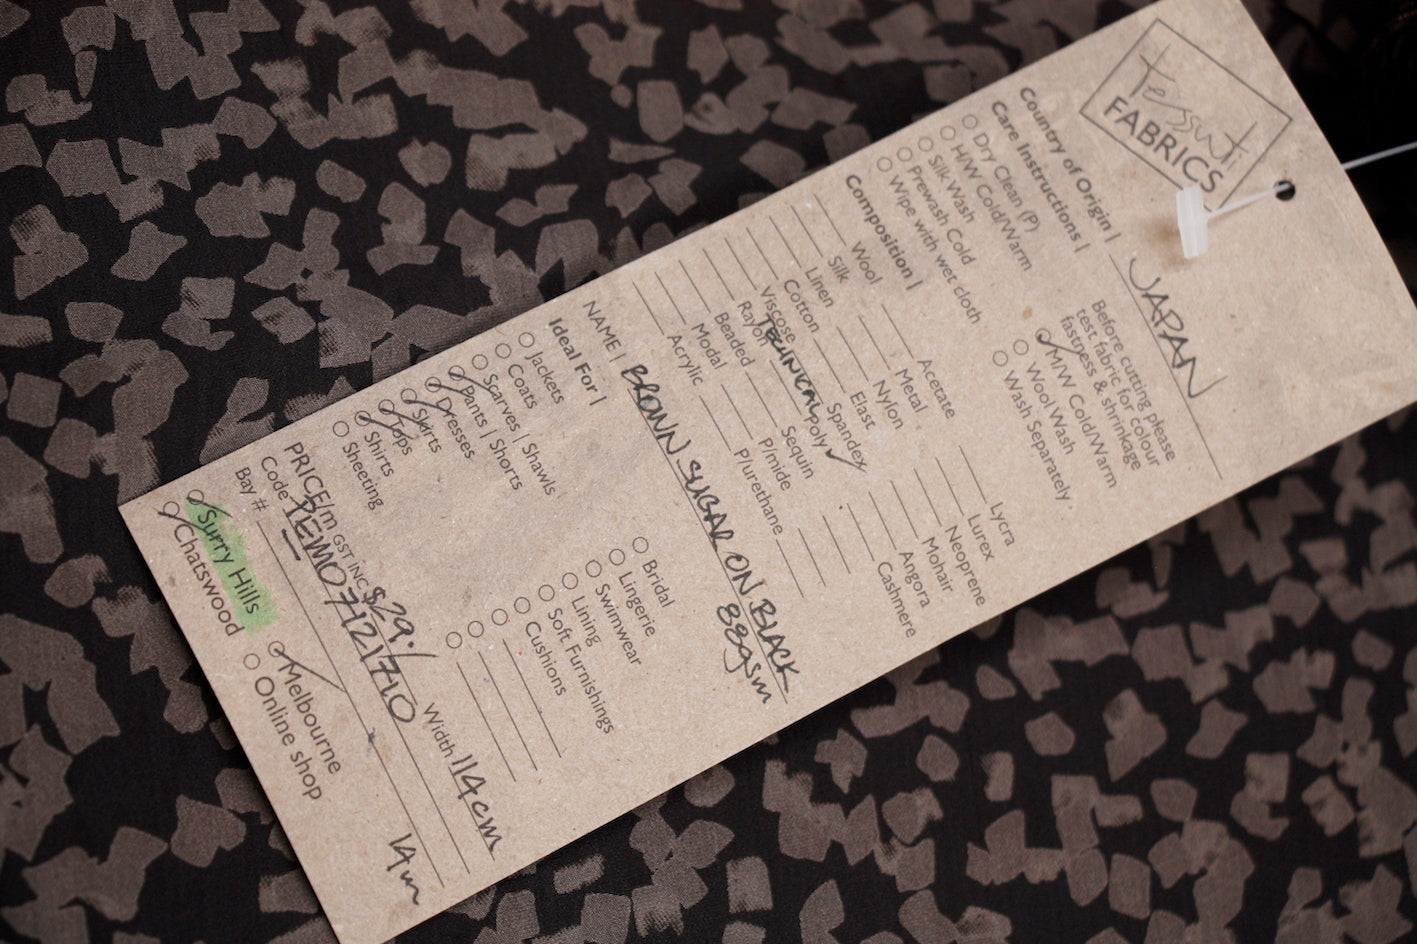 Tessuti
FABRICS
Country of Origin | JAPAN
Care Instructions |
Dry Clean (P)
H/W Cold/Warm
Silk Wash
Prewash Cold
Wipe with wet cloth
Before cutting please
test fabric for colour
fastness & shrinkage
M/W Cold/Warm
Wool Wash
Wash Separately
Composition |
Wool
Silk
Linen
Cotton
Viscose
Rayon
Beaded
Modal
Acrylic
TECHNICAL POLY
Acetate
Metal
Nylon
Elast
Spandex
Sequin
P/mide
P/urethane
Lycra
Lurex
Neoprene
Mohair
Angora
Cashmere
NAME | BROWN SUGAR ON BLACK
88gsm
Ideal For |
Jackets
Coats
Scarves | Shawls
Pants | Shorts
Dresses
Skirts
Tops
Shirts
Sheeting
Bridal
Lingerie
Swimwear
Lining
Soft Furnishings
Cushions
PRICE/m GST INC $29./ Width 114cm
Code TEM071721710
Bay # 14m
Surry Hills
Chatswood
Melbourne
Online shop